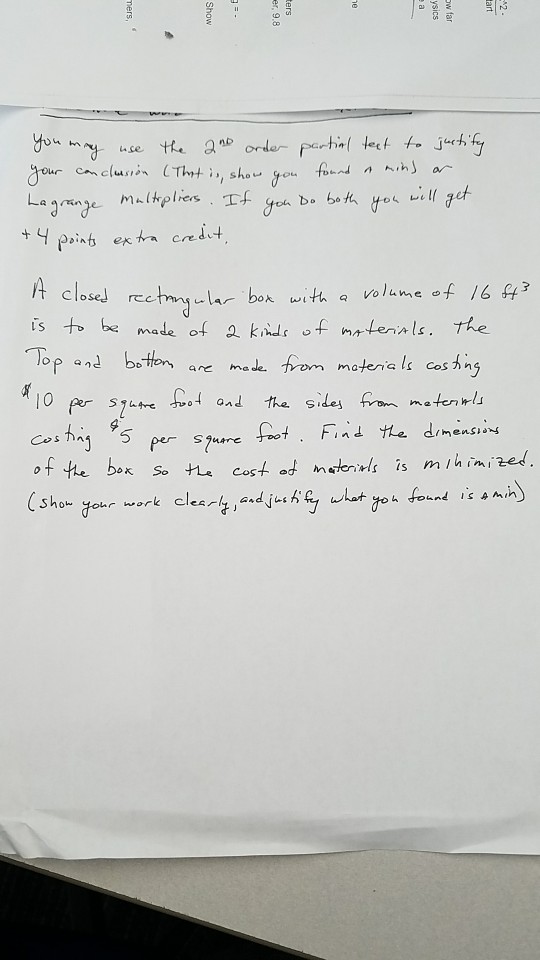 You may use the 2ND order partial test to justify
your conclusion (That is, show you found a min) or
Lagrange Multipliers. If you Do both you will get
+4 points extra credit.
A closed rectangular box with a volume of 16 ft³
is to be made of 2 kinds of materials. The
Top and bottom are made from materials costing
$10 per square foot and the sides from materials
costing $5 per square foot. Find the dimensions
of the box so the cost of materials is minimized.
(show your work clearly, and justify what you found is a min)
^2 -
tart
ow far
ysics
e a
ne
ters
er, 9.8
g = -
Show
ners,